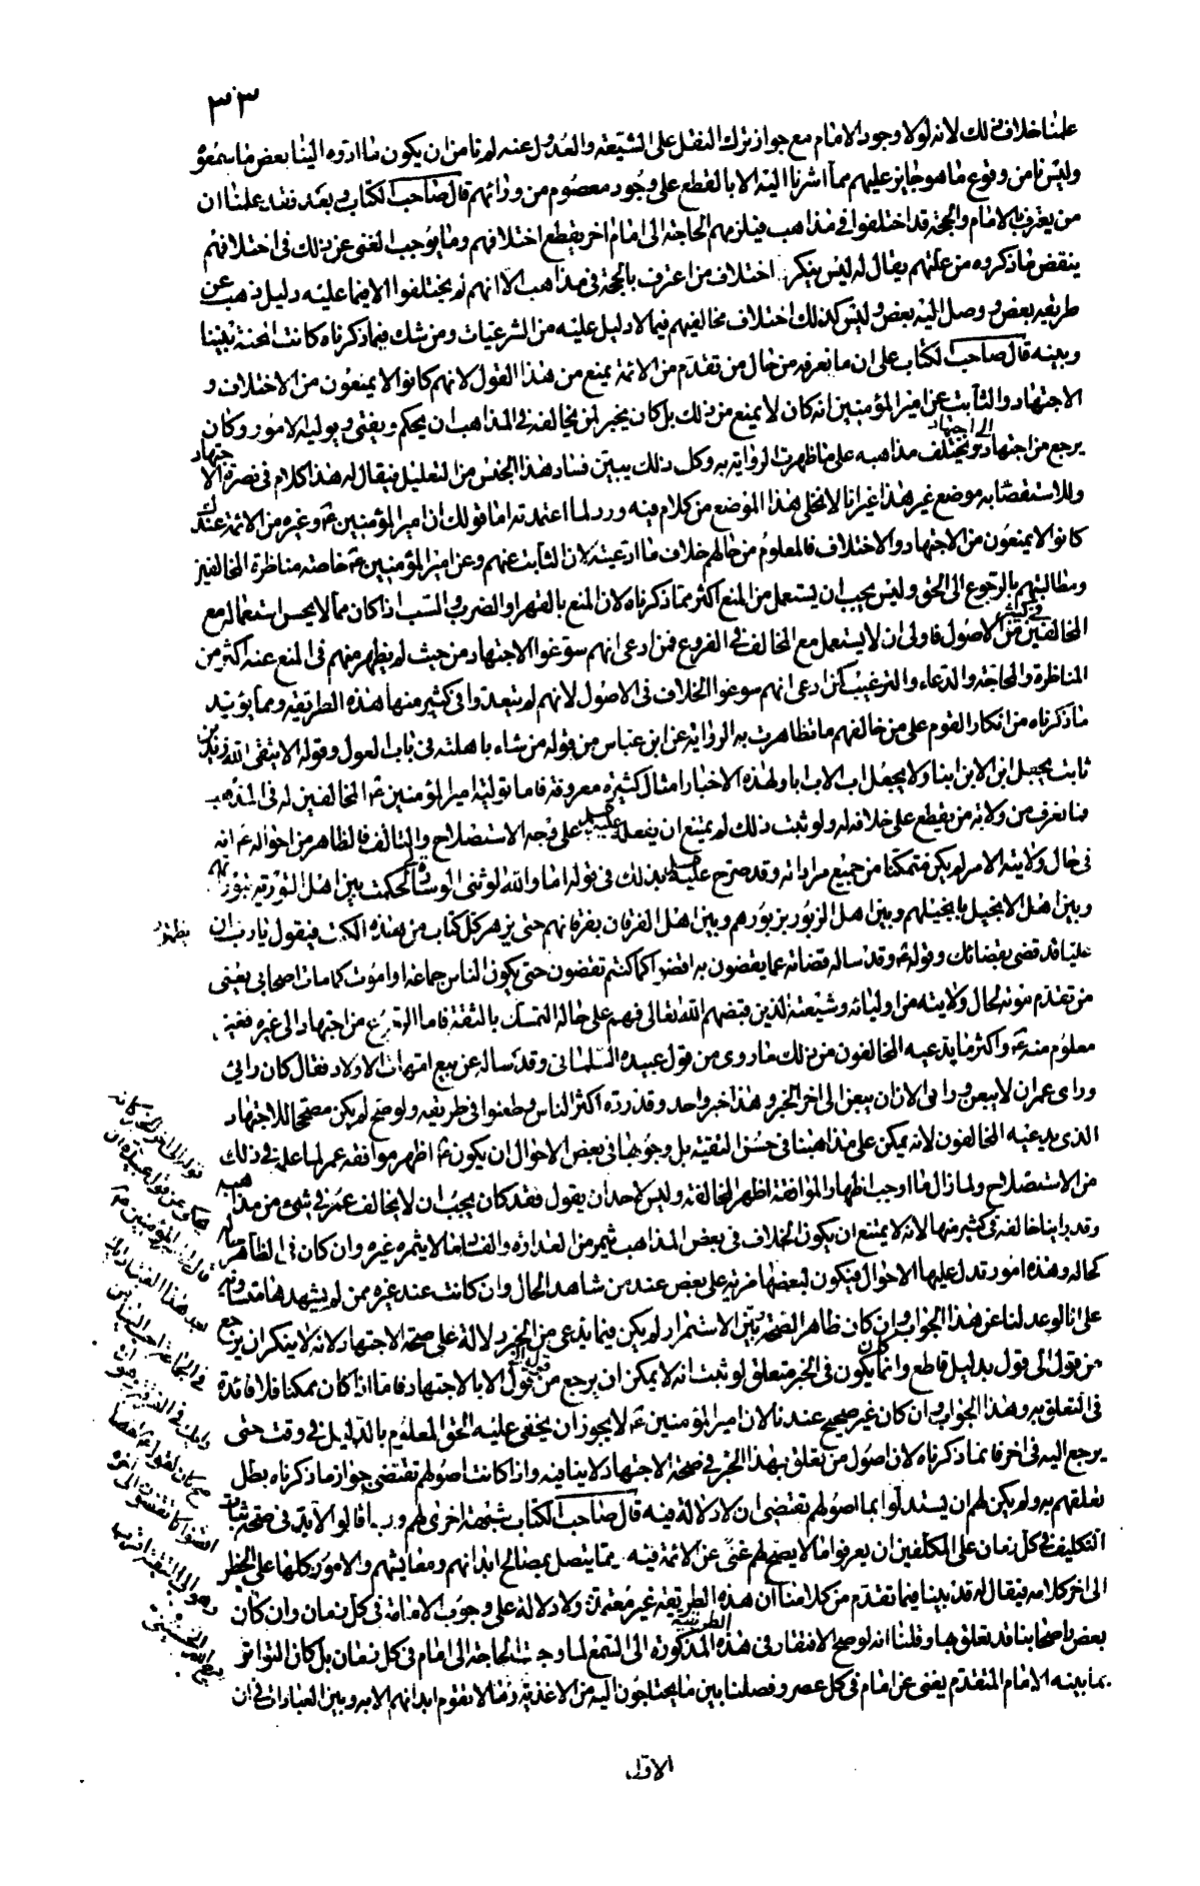 ٣٣
علمنا خلاف ذلك لانه لولا وجود الامام مع جواز ترك النقل على الشيعة والعدول عنه لم نامن ان يكون ما ادوه الينا بعض ما سمعوه
وليس نامن وقوع ما هو جايز عليهم مما اشرنا اليه الا بالقطع على وجود معصوم من ورائهم قال صاحب الكتاب وبعد فقد علمنا ان
من يعترف بالامام والحجة قد اختلفوا في مذاهب فيلزمهم الحاجة الى امام اخر يقطع اختلافهم وما يوجب الغنى عن ذلك في اختلافهم
ينقض ما ذكروه من علتهم يقال له ليس ينكر اختلاف من اعترف بالحجة في مذاهب الا انهم لم يختلفوا الا فيما عليه دليل ذهب عن
طريقه بعض ووصل اليه بعض وليس كذلك اختلاف مخالفيهم فيما لا دليل عليه من الشرعيات ومن شك فيما ذكرناه كانت المحنة بيننا
وبينه قال صاحب الكتاب على ان ما نعرفه من حال من تقدم من الائمة يمنع من هذا القول لانهم كانوا لا يمنعون من الاختلاف و
الاجتهاد والثابت عن امير المؤمنين انه كان لا يمنع من ذلك بل كان يخير لمن يخالفه في المذاهب ان يحكم ويفتي ويوليه الامور وكان
يرجع من اجتهاد الى اجتهاد وتختلف مذاهبه على ما ظهرت الرواية به وكل ذلك يبين فساد هذا الجنس من التعليل فيقال له هذا كلام في نصرة الاجتهاد
وللاستقصاء به موضع غير هذا غير انا لا نخلى هذا الموضع من كلام فيه ورد لما اعتمدته اما قولك ان امير المؤمنين ع وغيره من الائمة عندك
كانوا لا يمنعون من الاجتهاد والاختلاف فالمعلوم من حالهم خلاف ما ادعيته لان الثابت عنهم وعن امير المؤمنين ع خاصة مناظرة المخالفين
ومطالبتهم بالرجوع الى الحق وليس يجب ان يستعمل من المنع اكثر مما ذكرناه لان المنع بالقهر والضرب والسب اذا كان مما لا يحسن استعماله مع
المخالفين في كثير من الاصول فاولى ان لا يستعمل مع المخالف في الفروع فمن ادعى انهم سوغوا الاجتهاد من حيث لم يظهر منهم في المنع عنه اكثر من
المناظرة والمحاجة والدعاء والترغيب كمن ادعى انهم سوغوا الخلاف في الاصول لانهم لم يتعدوا في كثير منها هذه الطريقة ومما يؤيد
ما ذكرناه من انكار القوم على من خالفهم ما تظاهرت به الرواية عن ابن عباس من قوله من شاء باهلته في باب العول وقوله الا يتقى الله زيد بن
ثابت يجعل ابن الابن ابنا ولا يجعل اب الاب ابا ولهذه الاخبار امثال كثيرة معروفة فاما تولية امير المؤمنين ع المخالفين له في المذهب
فما نعرف من ولاته من يقطع على خلافه له ولو ثبت ذلك لم يمتنع ان يفعله عليه السلم على وجه الاستصلاح والتالف فالظاهر من احواله ع انه
في حال ولايته الامر لم يكن متمكنا من جميع مراداته وقد صرح عليه السلم بذلك في قوله اما والله لو ثنى لي الوساد لحكمت بين اهل التورية بتوراتهم
وبين اهل الانجيل بانجيلهم وبين اهل الزبور بزبورهم وبين اهل الفرقان بفرقانهم حتى يزهر كل كتاب من هذه الكتب فيقول يا رب ان
يظهر
عليا قد قضى بقضائك وقوله ع وقد ساله قضاته عما يقضون به اقضوا كما كنتم تقضون حتى يكون الناس جماعة او اموت كما مات اصحابي يعنى
من تقدم موته لحال ولايته من اوليائه وشيعته الذين قبضهم الله تعالى فهم على حالة التمسك بالتقية فاما الرجوع من اجتهاد الى غيره فغير
معلوم منه ع واكثر ما يدعيه المخالفون من ذلك ما روى من قول عبيدة السلماني وقد ساله عن بيع امهات الاولاد فقال كان رايى
وراى عمر ان لا يبعن ورايى الان ان يبعن الى اخر الخبر وهذا خبر واحد وقد رده اكثر الناس وطعنوا في طريقه ولو صح لم يكن مصححا للاجتهاد
الذى يدعيه المخالفون لانه يمكن على مذاهبنا في حسن التقية بل وجوبها في بعض الاحوال ان يكون ع اظهر موافقة عمر لما علمه في ذلك
من الاستصلاح ولما زال ما اوجب اظهار الموافقة اظهر المخالفة وليس لاحد ان يقول فقد كان يجب ان لا يخالف عمر في شيء من مذاهبه
وقد راينا خالفه في كثير منها لانه لا يمتنع ان يكون الخلاف في بعض المذاهب يثمر من العداوة والفساد ما لا يثمره غيره وان كان في الظاهر له
كحاله وهذه امور تدل عليها الاحوال فيكون لبعضها مزية على بعض عند من شاهد الحال وان كانت عند غيره ممن لم يشهدها متساوية
على انا لو عدلنا عن هذا الجواب وان كان ظاهر الصحة بين الاستمرار لم يكن فيما يدعى من الخبر دلالة على صحة الاجتهاد لانه لا ينكر ان يرجع
من قول الى قول بدليل قاطع وانما كان يكون في الخبر متعلق لو ثبت انه لا يمكن ان يرجع من قول الى قول الا بالاجتهاد فاما اذا كان ممكنا فلا فائدة
في التعلق به وهذا الجواب وان كان غير صحيح عندنا لان امير المؤمنين ع لا يجوز ان يخفى عليه الحق المعلوم بالدليل في وقت حتى
يرجع اليه في اخر فانما ذكرناه لان اصول من تعلق بهذا الخبر في صحة الاجتهاد لا ينافيه واذا كانت اصولهم تقتضى جواز ما ذكرناه بطل
تعلقهم به ولم يكن لهم ان يستدلوا بما اصولهم تقتضى ان لا دلالة فيه قال صاحب الكتاب شبهة اخرى لهم وربما قالوا لا بد في صحة ثبات
التكليف في كل زمان على المكلفين ان يعرفوا ما لا يصح لهم غنى عن الائمة فيه مما يتصل بمصالح ابدانهم ومعايشهم والامور كلها على الحظر
الى اخر كلامه فيقال له قد بينا فيما تقدم من كلامنا ان هذه الطريقة غير معتمدة ولا دلالة على وجوب الامامة في كل زمان وان كان
بعض اصحابنا قد تعلق بها وقلنا انه لو صح الافتقار في هذه الطريقة المذكورة الى السمع لما وجبت الحاجة الى امام في كل زمان بل كان التواتر
بما بينه الامام المتقدم يغنى عن امام في كل عصر وفصلنا بين ما يحتاجون اليه من الاغذية وما لا تقوم ابدانهم الا به وبين العبادات في ان
قوله الى اخر الخبر كانه
حكى عن قول عبيدة ان
قال امير المؤمنين
بعد هذا القضا رايك
في الجماعة احب الينا من
رايك في الفرقة
كان يقول ع ايضا
اقضوا كما تقضون الى اخره
وهو الى التقية اقرب
الاول